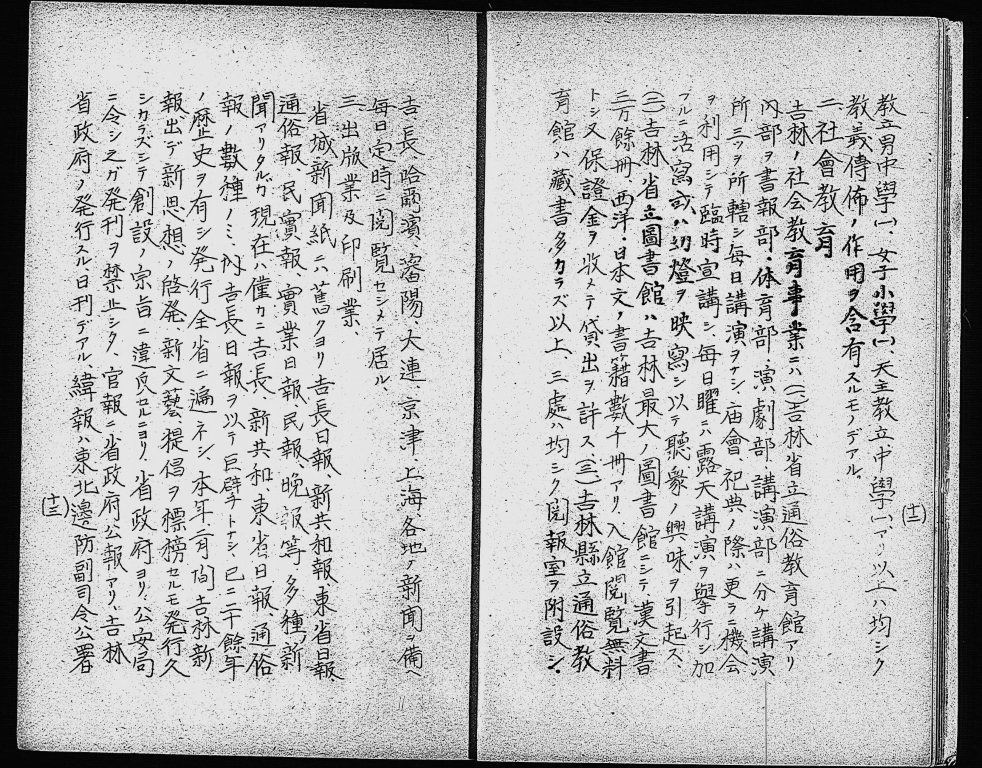 (十二)
教立男中學(一)、女子小學(一)、天主教立中學(一)、アリ以上ハ均シク
教義傳佈ノ作用ヲ含有スルモノデアル。
二、社會教育
吉林ノ社会教育事業ニハ(一)吉林省立通俗教育館アリ
内部ヲ書報部、体育部、演劇部、講演部ニ分ケ講演
所三ツヲ所轄シ毎日講演ヲナシ、庙會、祀典ノ際ハ更ラニ機会
ヲ利用シテ臨時宣講シ、毎日曜ニハ露天講演ヲ擧行シ加
フルニ活寫或ハ幻燈ヲ映寫シ以テ聽衆ノ興味ヲ引起ス、
(二)吉林省立圖書館ハ吉林最大ノ圖書館ニシテ、漢文書
三万餘冊、西洋、日本文ノ書籍數千冊アリ、入館閲覧無料
トシ又保證金ヲ收メテ貸出ヲ許ス、(三)吉林縣立通俗教
育館ハ藏書多カラズ以上、三處ハ均シク閲報室ヲ附設シ、
吉長、哈爾濱、瀋陽、大連、京津、上海、各地ノ新聞ヲ備ヘ
毎日定時ニ閲覧セシメテ居ル、
三、出版業及印刷業、
省城新聞紙ニハ舊クヨリ吉長日報、新共和報、東省日報
通俗報、民實報、實業日報、民報、晩報等、多種ノ新
聞アリタルガ、現在ハ僅カニ吉長、新共和、東省日報、通俗
報ノ數種ノミ、内吉長日報ヲ以テ巨擘トナシ、已ニ二十餘年
ノ歴史ヲ有シ発行全省ニ遍ネシ、本年二月間吉林新
報出デ新思想ノ啓発、新文藝提倡ヲ標榜セルモ発行久
シカラズシテ創設ノ宗旨ニ違反セルニヨリ、省政府ヨリ、公安局
ニ令シ之ガ発刊ヲ禁止シタ、官報ニ省政府公報アリ、吉林
省政府ノ発行スル日刊デアル、緯報ハ東北邊防副司令公署
(十三)